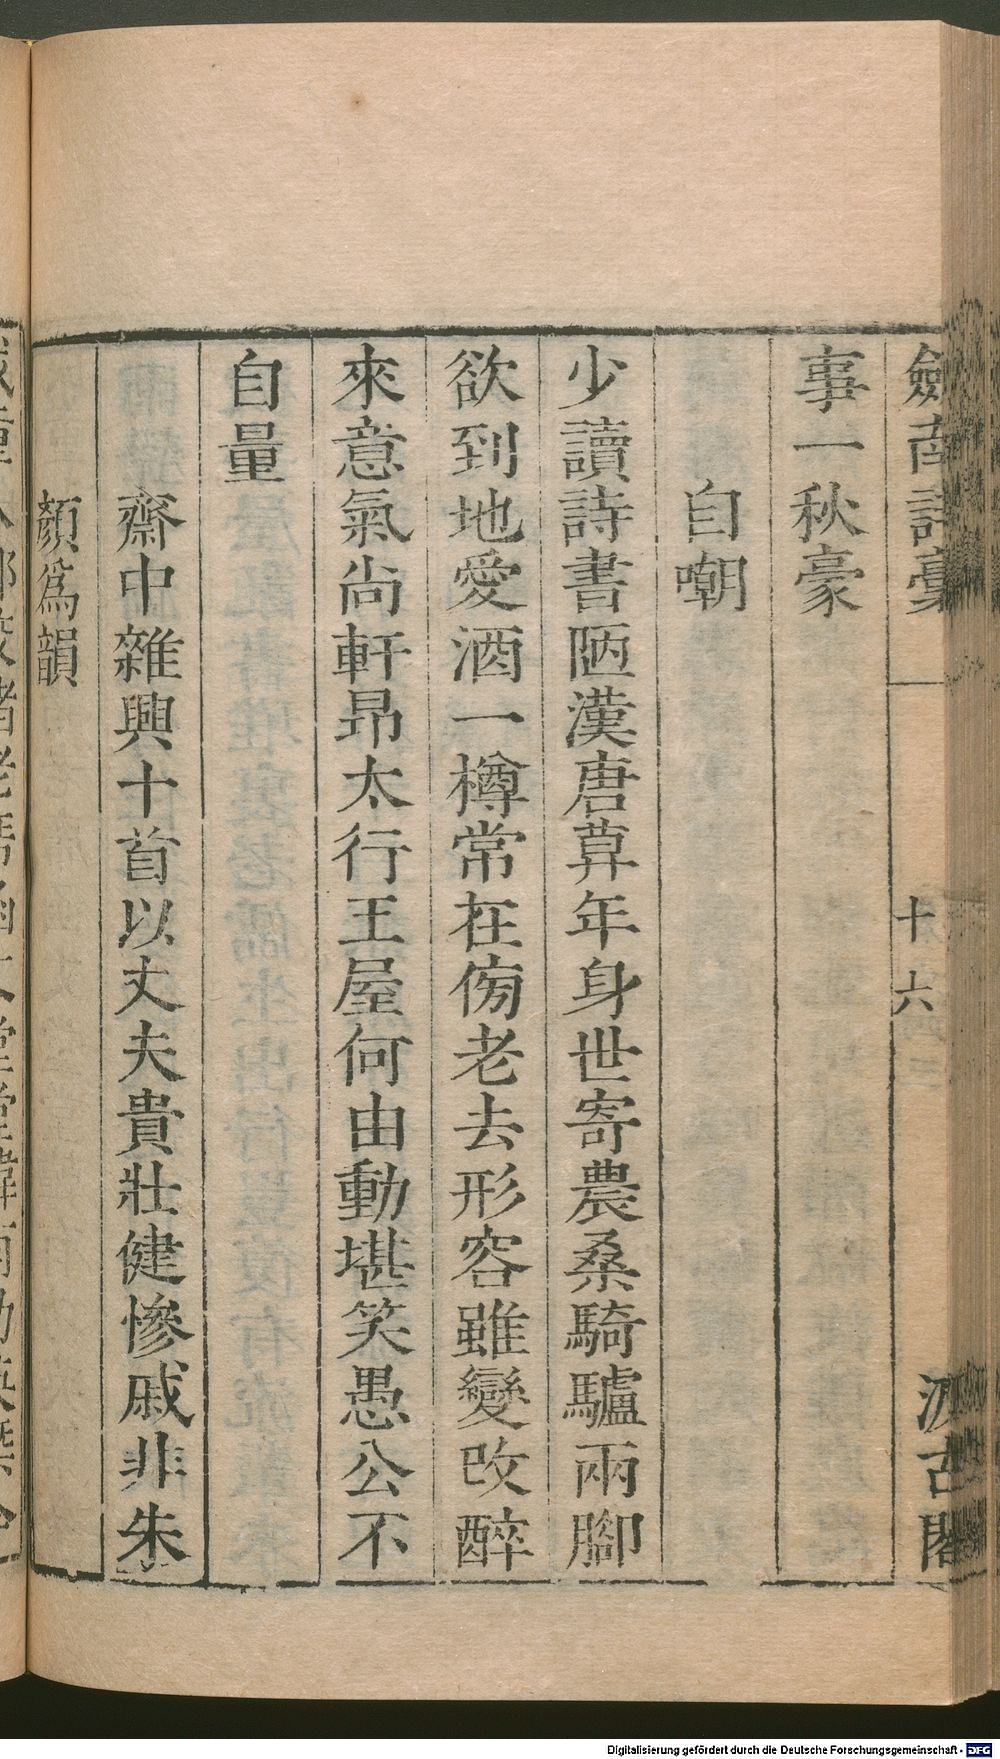 劒南詩稾 十六 汲古閣
事一秋豪
自嘲
少讀詩書陋漢唐莫年身世寄農桑騎驢兩腳
欲到地愛酒一樽常在傍老去形容雖變改醉
來意氣尚軒昂太行王屋何由動堪笑愚公不
自量
齋中雜興十首以丈夫貴壯健慘戚非朱
顏爲韻
Digitalisierung gefördert durch die Deutsche Forschungsgemeinschaft - DFG